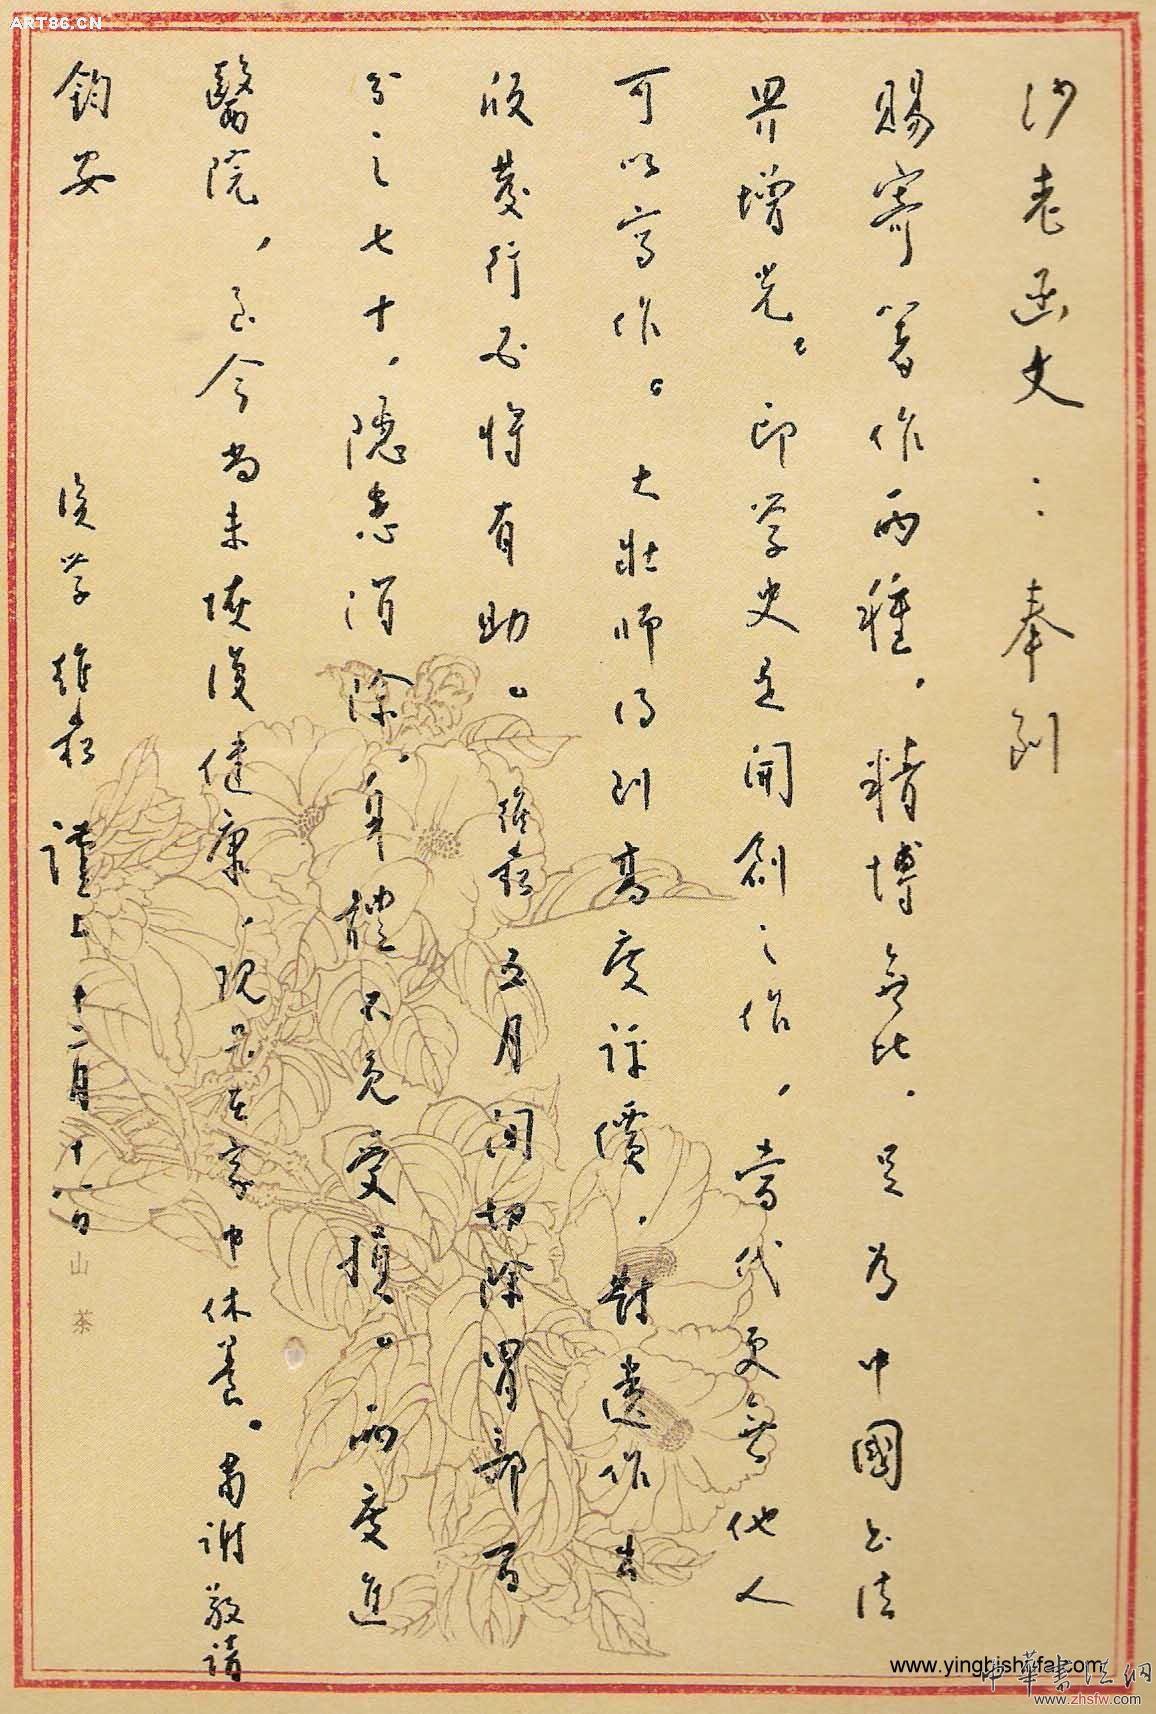 沙老函丈：奉到
賜寄著作兩種，精博無比，足为中國书法
界增光。印学史是開創之作，當代更無他人
可以写作。大壯師得到高度評價，對遺作出
版發行必将有助。維崧五月间切除胃部百
分之七十，隐患消除，身體不免受損。兩度進
醫院，至今尚未恢復健康，现只在家中休養。肃谢敬请
鈞安
後学維崧謹上十二月十八日
山茶
ART86.CN
www.yingbishufa.com
中華書法網
www.zhsfw.com